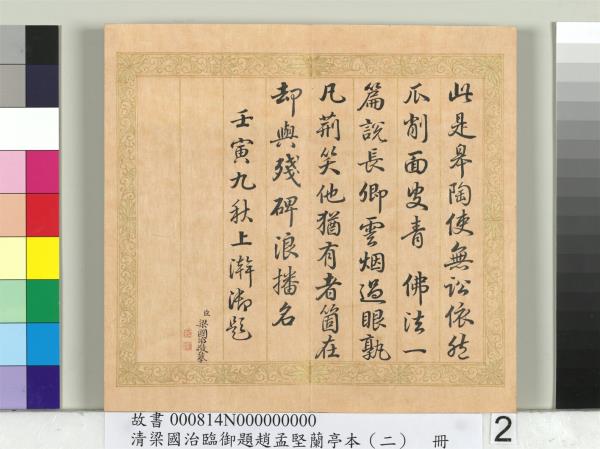 此是皋陶使無訟依然
瓜削面皮青 佛法一
篇說長卿雲烟過眼孰
凡荊笑他猶有者箇在
却與殘碑浪播名
壬寅九秋上澣御題
臣梁國治敬摹
故書 000814N000000000
清梁國治臨御題趙孟堅蘭亭本（二） 冊
2